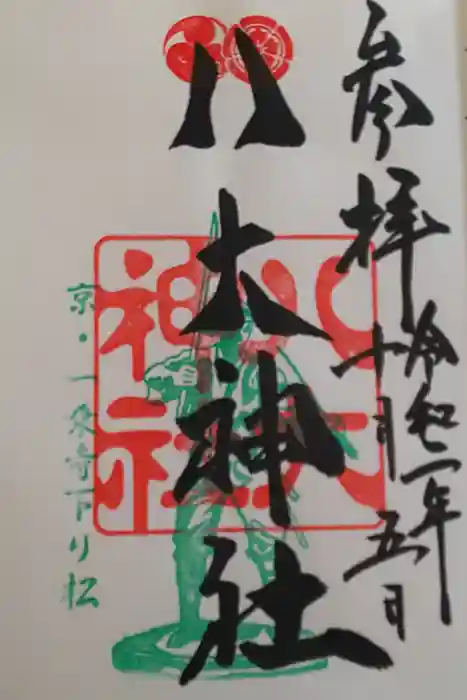 参拝
令和二年
十月五日
八大神社
八大
神社
京・一乗寺下り松